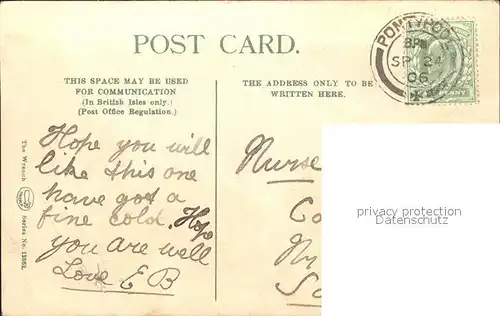 POST CARD.
PONTYPOOL
8 PM
SP 24
06
PENNY
THIS SPACE MAY BE USED
FOR COMMUNICATION
(In British Isles only.)
(Post Office Regulation.)
THE ADDRESS ONLY TO BE
WRITTEN HERE.
The Wrench
Series No.
Hope you will
like this one
have got a
fine cold. Hope
you are well
Love E B
Nurse
Co
Ny
So
privacy protection
DatenSchutz